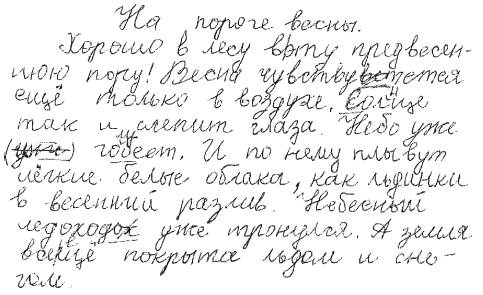 На пороге весны.
Хорошо в лесу в эту предвесен-
нюю пору! Весна чувствуется
ещё только в воздухе. Солнце
так и слепит глаза. Небо уже
(уже) голубеет. И по нему плывут
лёгкие белые облака, как льдинки
в весенний разлив. Небесный
ледоход уже тронулся. А земля
вся ещё покрыта льдом и сне-
гом.